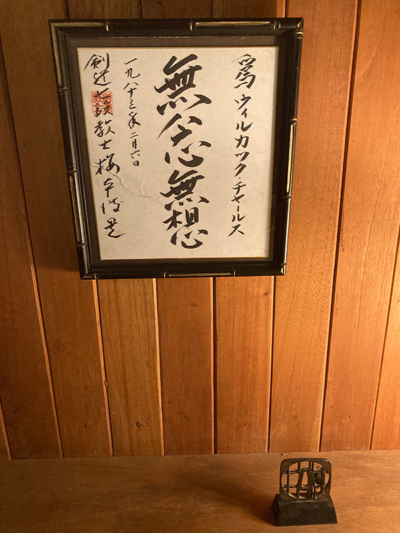 爲 ウィルカック・チャールス
無念無想
一九八十三年二月六日
剣道七段教士